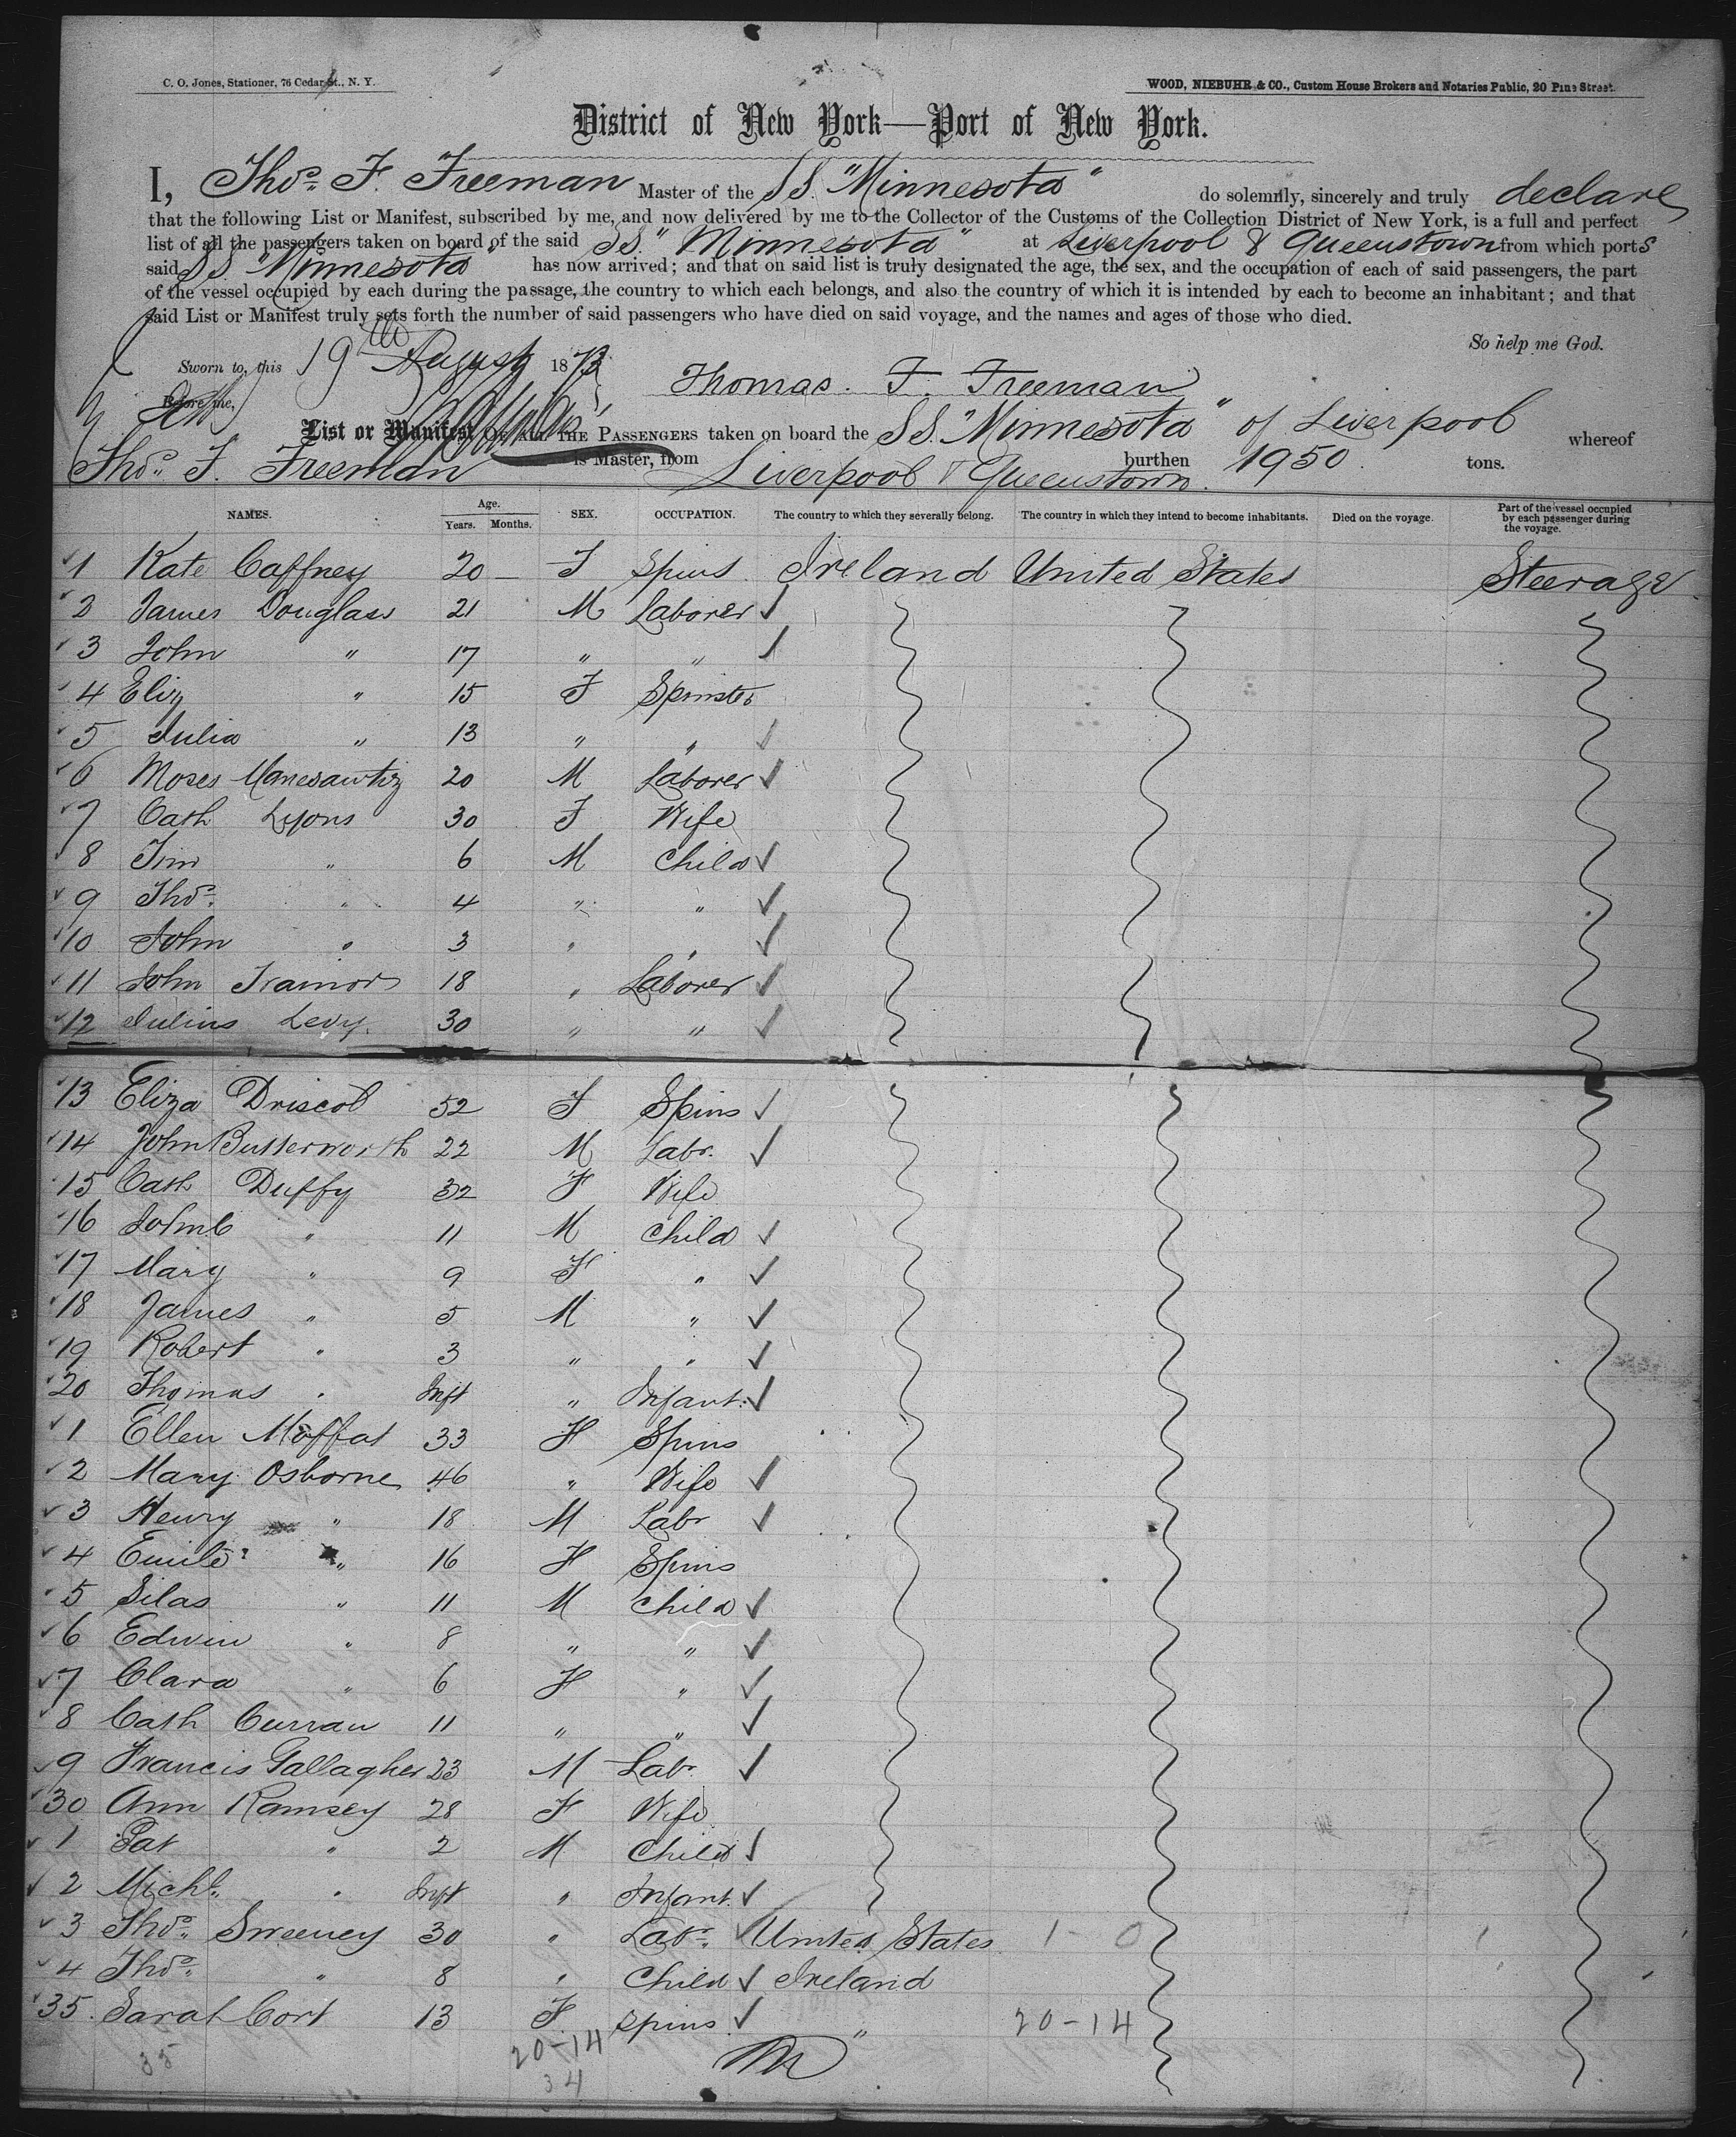 C. O. Jones, Stationer, 76 Cedar St., N. Y.
WOOD, NIEBUHR & CO., Custom House Brokers and Notaries Public, 20 Pine Street.
District of New York—Port of New York.
I, Thos. F. Freeman Master of the SS. "Minnesota" do solemnly, sincerely and truly declare
that the following List or Manifest, subscribed by me, and now delivered by me to the Collector of the Customs of the Collection District of New York, is a full and perfect
list of all the passengers taken on board of the said SS. "Minnesota" at Liverpool & Queenstown from which ports
said SS "Minnesota" has now arrived; and that on said list is truly designated the age, the sex, and the occupation of each of said passengers, the part
of the vessel occupied by each during the passage, the country to which each belongs, and also the country of which it is intended by each to become an inhabitant; and that
said List or Manifest truly sets forth the number of said passengers who have died on said voyage, and the names and ages of those who died.
So help me God.
Sworn to, this 19th August 1873
Thomas. F. Freeman
Before me,
List or Manifest OF ALL THE PASSENGERS taken on board the SS. "Minnesota" of Liverpool whereof
Thos. F. Freeman is Master, from Liverpool & Queenstown. burthen 1950. tons.
NAMES. Age. Years. Months. SEX. OCCUPATION. The country to which they severally belong. The country in which they intend to become inhabitants. Died on the voyage. Part of the vessel occupied by each passenger during the voyage.
1 Kate Caffney 20 – F Spins Ireland United States Steerage
2 James Douglass 21 M Laborer
3 John " 17 " "
4 Eliz " 15 F Spinster
5 Julia " 13 " "
6 Moses 20 M Laborer
7 Cath Lyons 30 F Wife
8 Tim " 6 M Child
9 Thos. " 4 " "
10 John " 3 " "
11 John Trainor 18 " Laborer
12 Julius Levy. 30 " "
13 Eliza Driscol 52 F Spins
14 John Butterworth 22 M Labr.
15 Cath Duffy 32 F Wife
16 John C " 11 M Child
17 Mary " 9 F "
18 James " 5 M "
19 Robert " 3 " "
20 Thomas " Inft " Infant.
1 Ellen Moffat 33 F Spins
2 Mary Osborne 46 " Wife
3 Henry " 18 M Labr
4 " 16 F Spins
5 Silas " 11 M Child
6 Edwin " 8 " "
7 Clara " 6 F "
8 Cath Curran 11 " "
9 Francis Gallagher 23 M Labr.
30 Ann Ramsey 28 F Wife
1 Pat " 2 M Child
2 Michl. " Inft " Infant.
3 Thos. Sweeney 30 " Labr. United States 1 - 0
4 Thos. " 8 " Child Ireland
35. Sarah Cort 13 F Spins. " 20-14
35 20-14
34